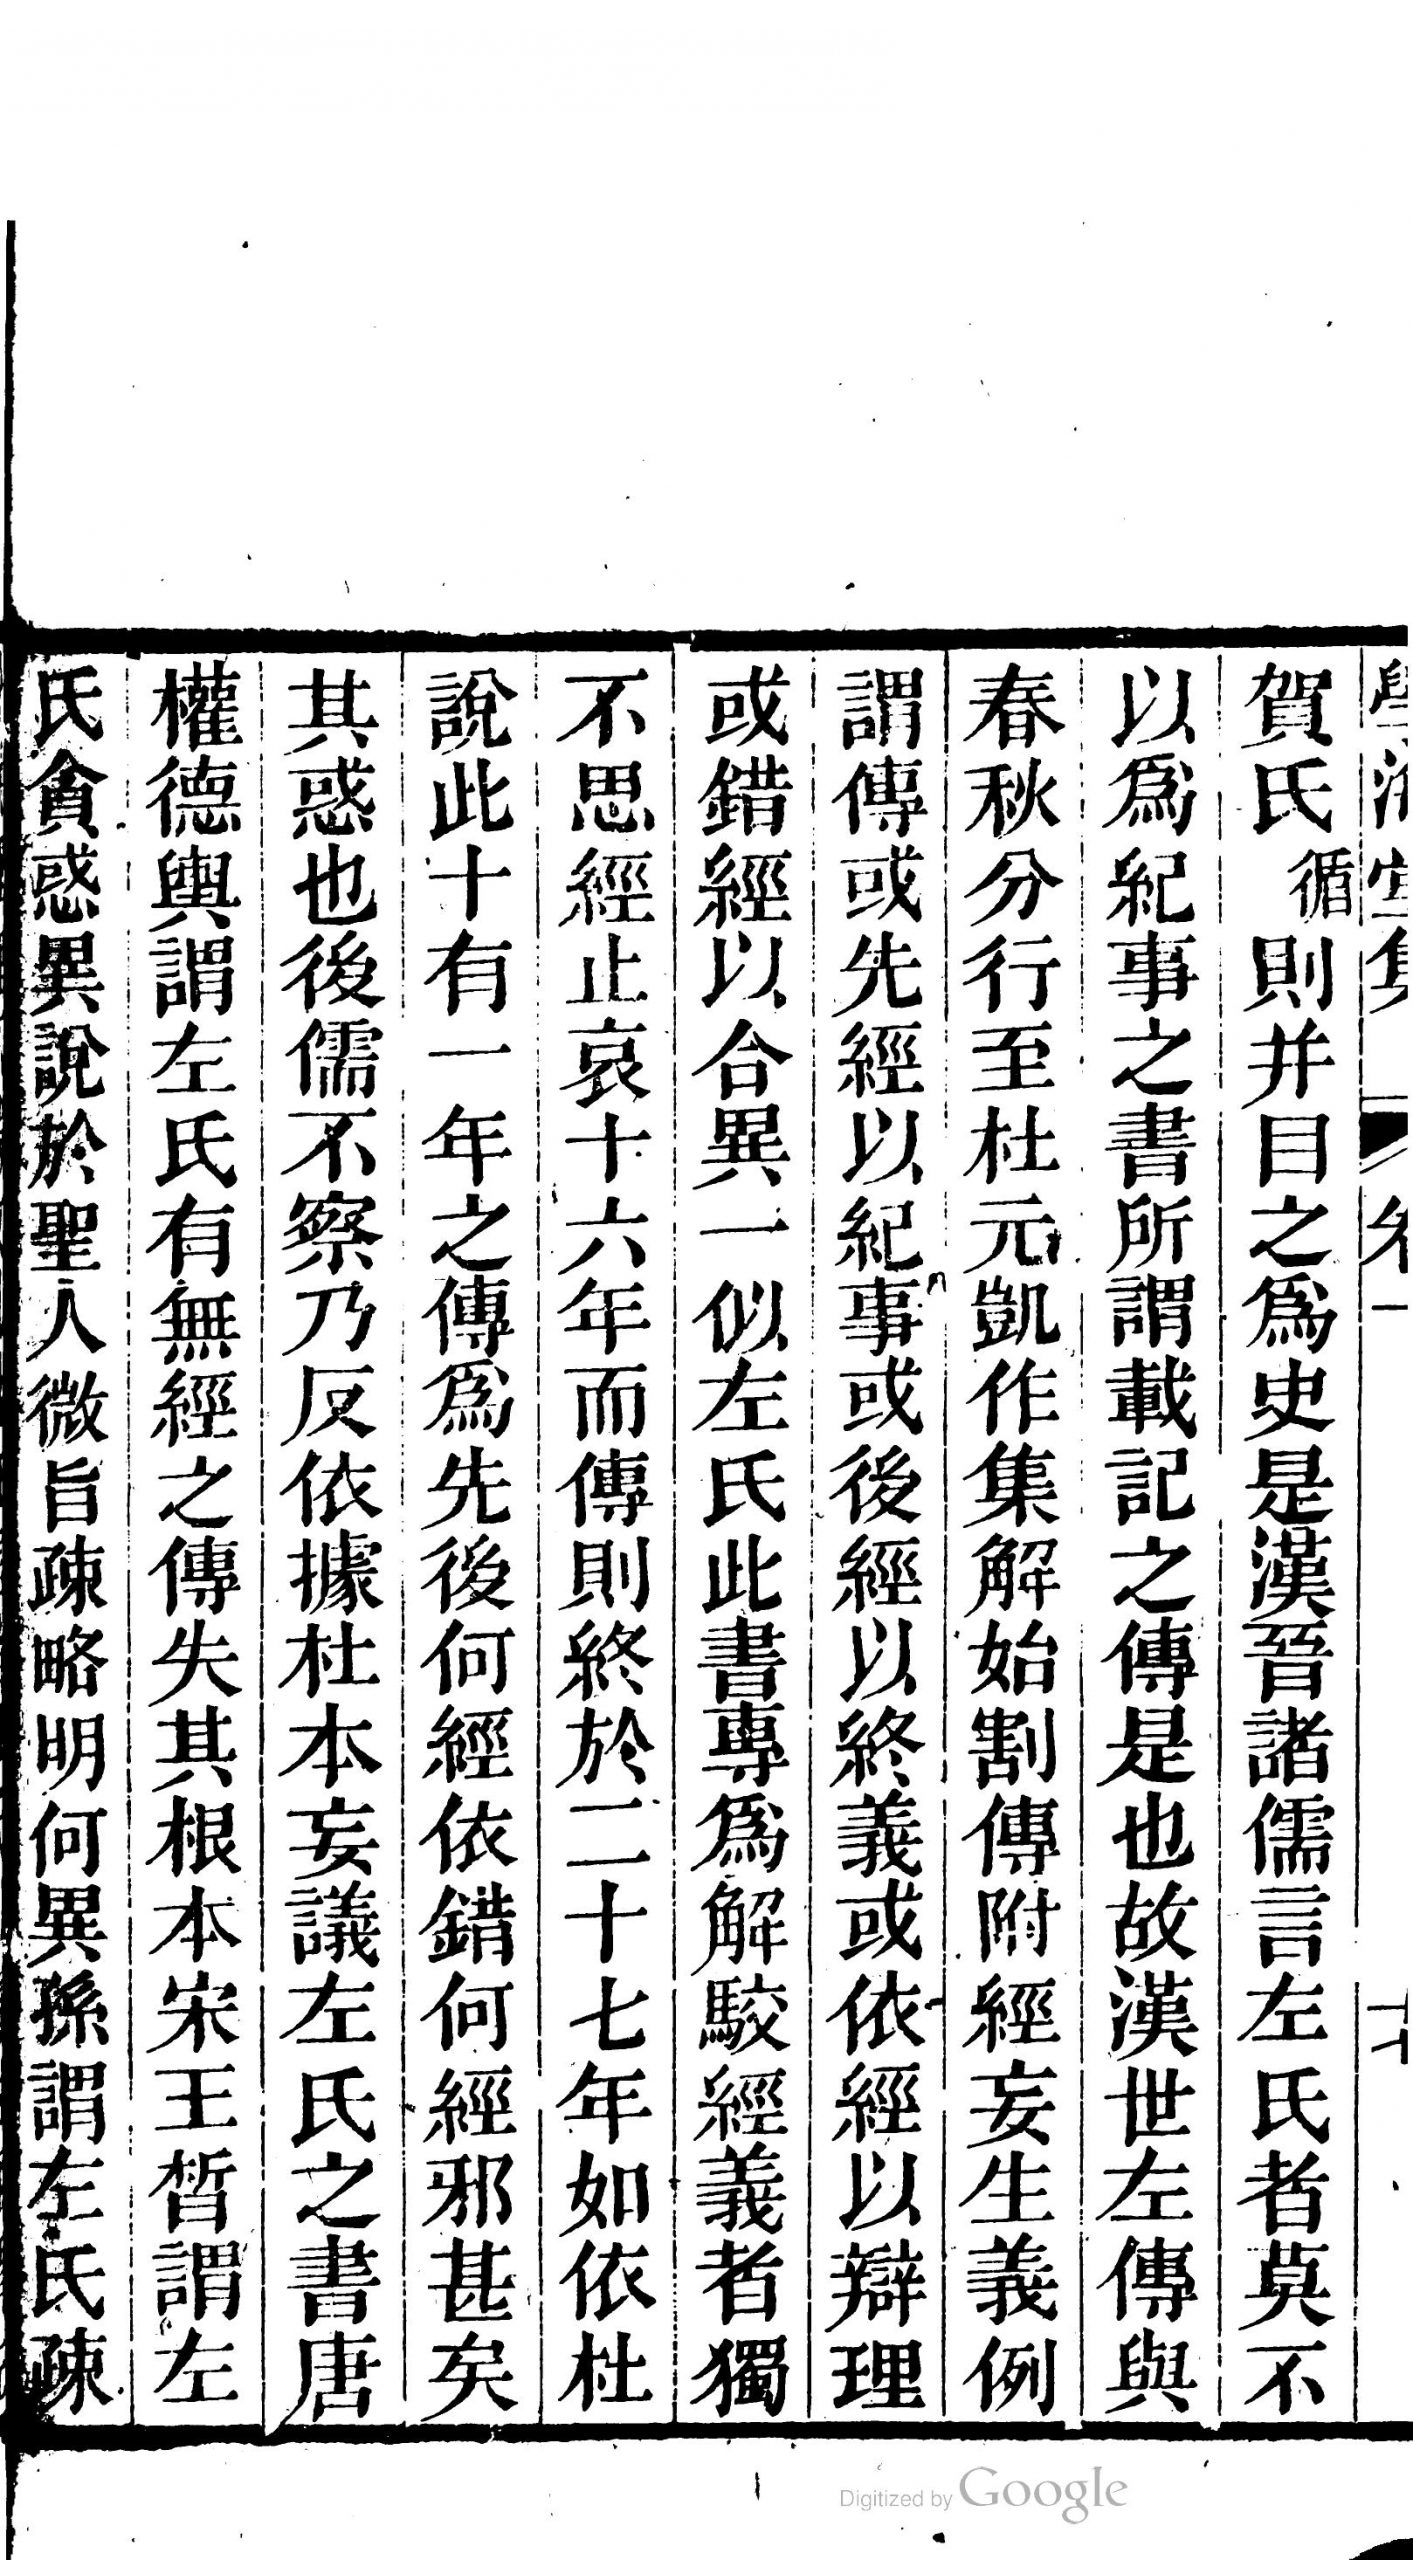 賀氏循則并目之爲史是漢晉諸儒言左氏者莫不
以爲紀事之書所謂載記之傳是也故漢世左傳與
春秋分行至杜元凱作集解始割傳附經妄生義例
謂傳或先經以紀事或後經以終義或依經以辯理
或錯經以合異一似左氏此書專爲解駮經義者獨
不思經止哀十六年而傳則終於二十七年如依杜
說此十有一年之傳爲先後何經依錯何經邪甚矣
其惑也後儒不察乃反依據杜本妄議左氏之書唐
權德輿謂左氏有無經之傳失其根本宋王晳謂左
氏貪惑異說於聖人微旨疎略明何異孫謂左氏疎
Digitized by Google